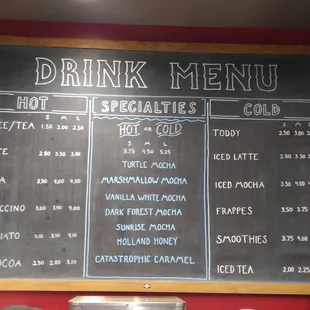 DRINK MENU
HOT
S M L
EE/TEA 1.50 2.00 2.50
TE 2.80 3.50
3.50 4.00
CCINO 3.00 3.50 4.00
IATO
COCOA 2.50
SPECIALTIES
HOT OR COLD
S M L
3.75 4.50 5.25
TURTLE MOCHA
MARSHMALLOW MOCHA
VANILLA WHITE MOCHA
DARK FOREST MOCHA
SUNRISE MOCHA
HOLLAND HONEY
CATASTROPHIC CARAMEL
COLD
S M
TODDY 2.50 3.00
ICED LATTE 2.80 3.50
ICED MOCHA 3.50 4.00
FRAPPES 3.50
SMOOTHIES 3.75
ICED TEA 2.00 2.25